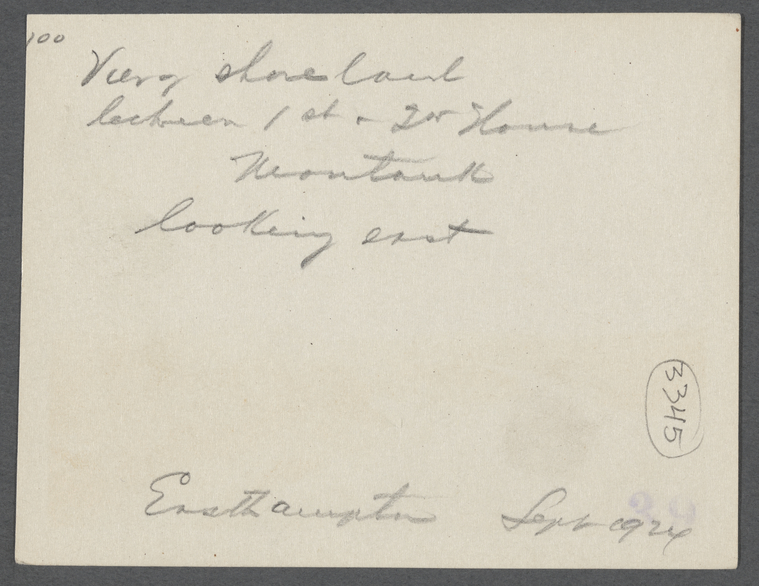 100
View shore land
between 1st & 2nd House
Montauk
looking east
3345
Easthampton Sept 1924